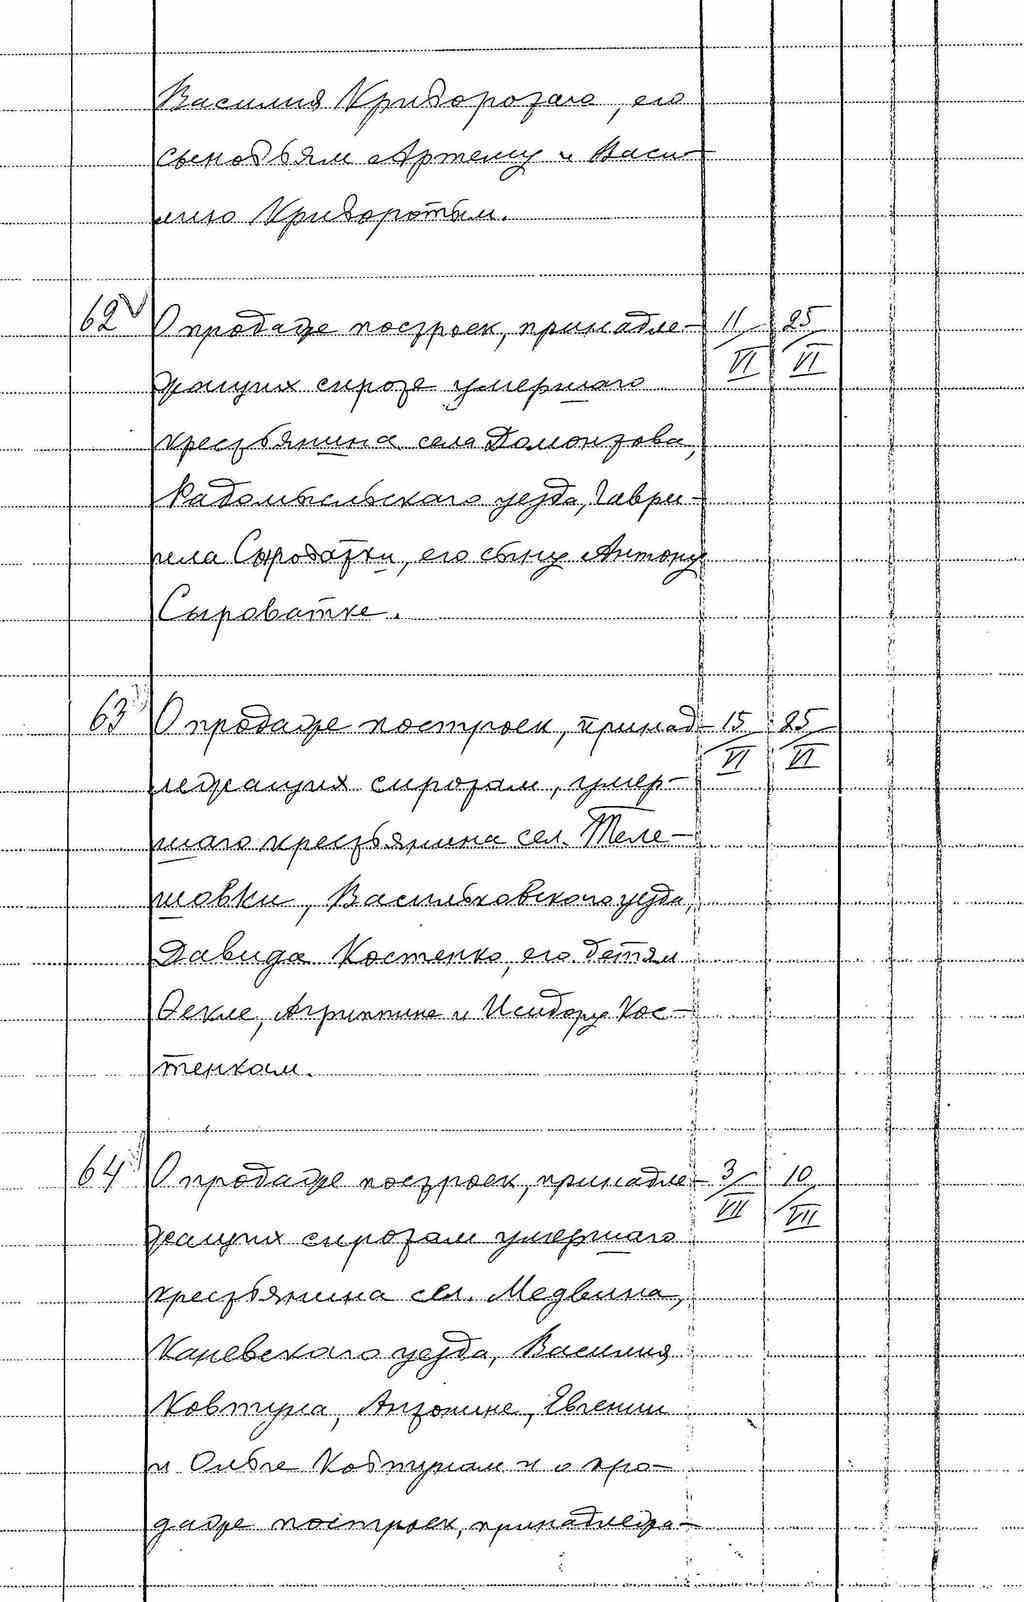 Василия Криворотаго, его
сыновьям Артему и Васи-
лию Криворотым.
62 О продаже построек, принадле- 11/VI 25/VI
жащих сироте умершаго
крестьянина села Домонтова,
Радомысльского уезда, Гаври-
ила Сыроватки, его сыну Антону
Сыроватке.
63 О продаже построек, принад- 15/VI 25/VI
лежащих сиротам, умер-
шаго крестьянина сел. Теле-
шовки, Васильковского уезда,
Давида Костенко, его детям
Фекле, Агриппине и Исидору Кос-
тенкам.
64 О продаже построек, принадле- 3/VII 10/VII
жащих сиротам умершаго
крестьянина сел. Медвина,
Каневского уезда, Василия
Ковтуна, Антонине, Евгении
и Ольге Ковтунам и о про-
даже построек, принадлежа-